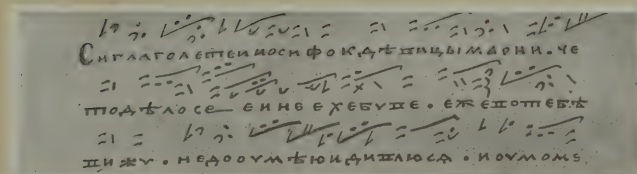 СИГЛАГОЛЕТЕИИОСИФОКДѢВИЦЫМАРИИ · ЧЕ
ТОДѢЛОСЕ— ЕИНЕЕХЕБУВЕ · ЕЖЕВОТЕБѢ
ВИЖУ · НЕДООУМѢЮИДИВЛЮСѦ · ИОУМОМЪ